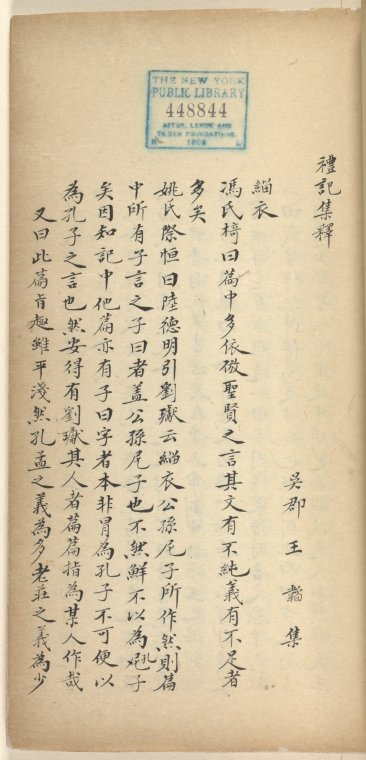 THE NEW YORK
PUBLIC LIBRARY
448844
ASTOR, LENOX AND
TILDEN FOUNDATIONS.
R 1908 L
禮記集釋
吳郡 王 集
緇衣
馮氏椅曰篇中多依倣聖賢之言其文有不純義有不足者
多矣
姚氏際恒曰陸德明引劉瓛云緇衣公孫尼子所作然則篇
中所有子言之子曰者蓋公孫尼子也不然鮮不以為孔子
矣因知記中他篇亦有子曰字者本非冐為孔子不可便以
為孔子之言也然安得有劉瓛其人者篇篇指為某人作哉
又曰此篇旨趣雖平淺然孔孟之義為多老莊之義為少